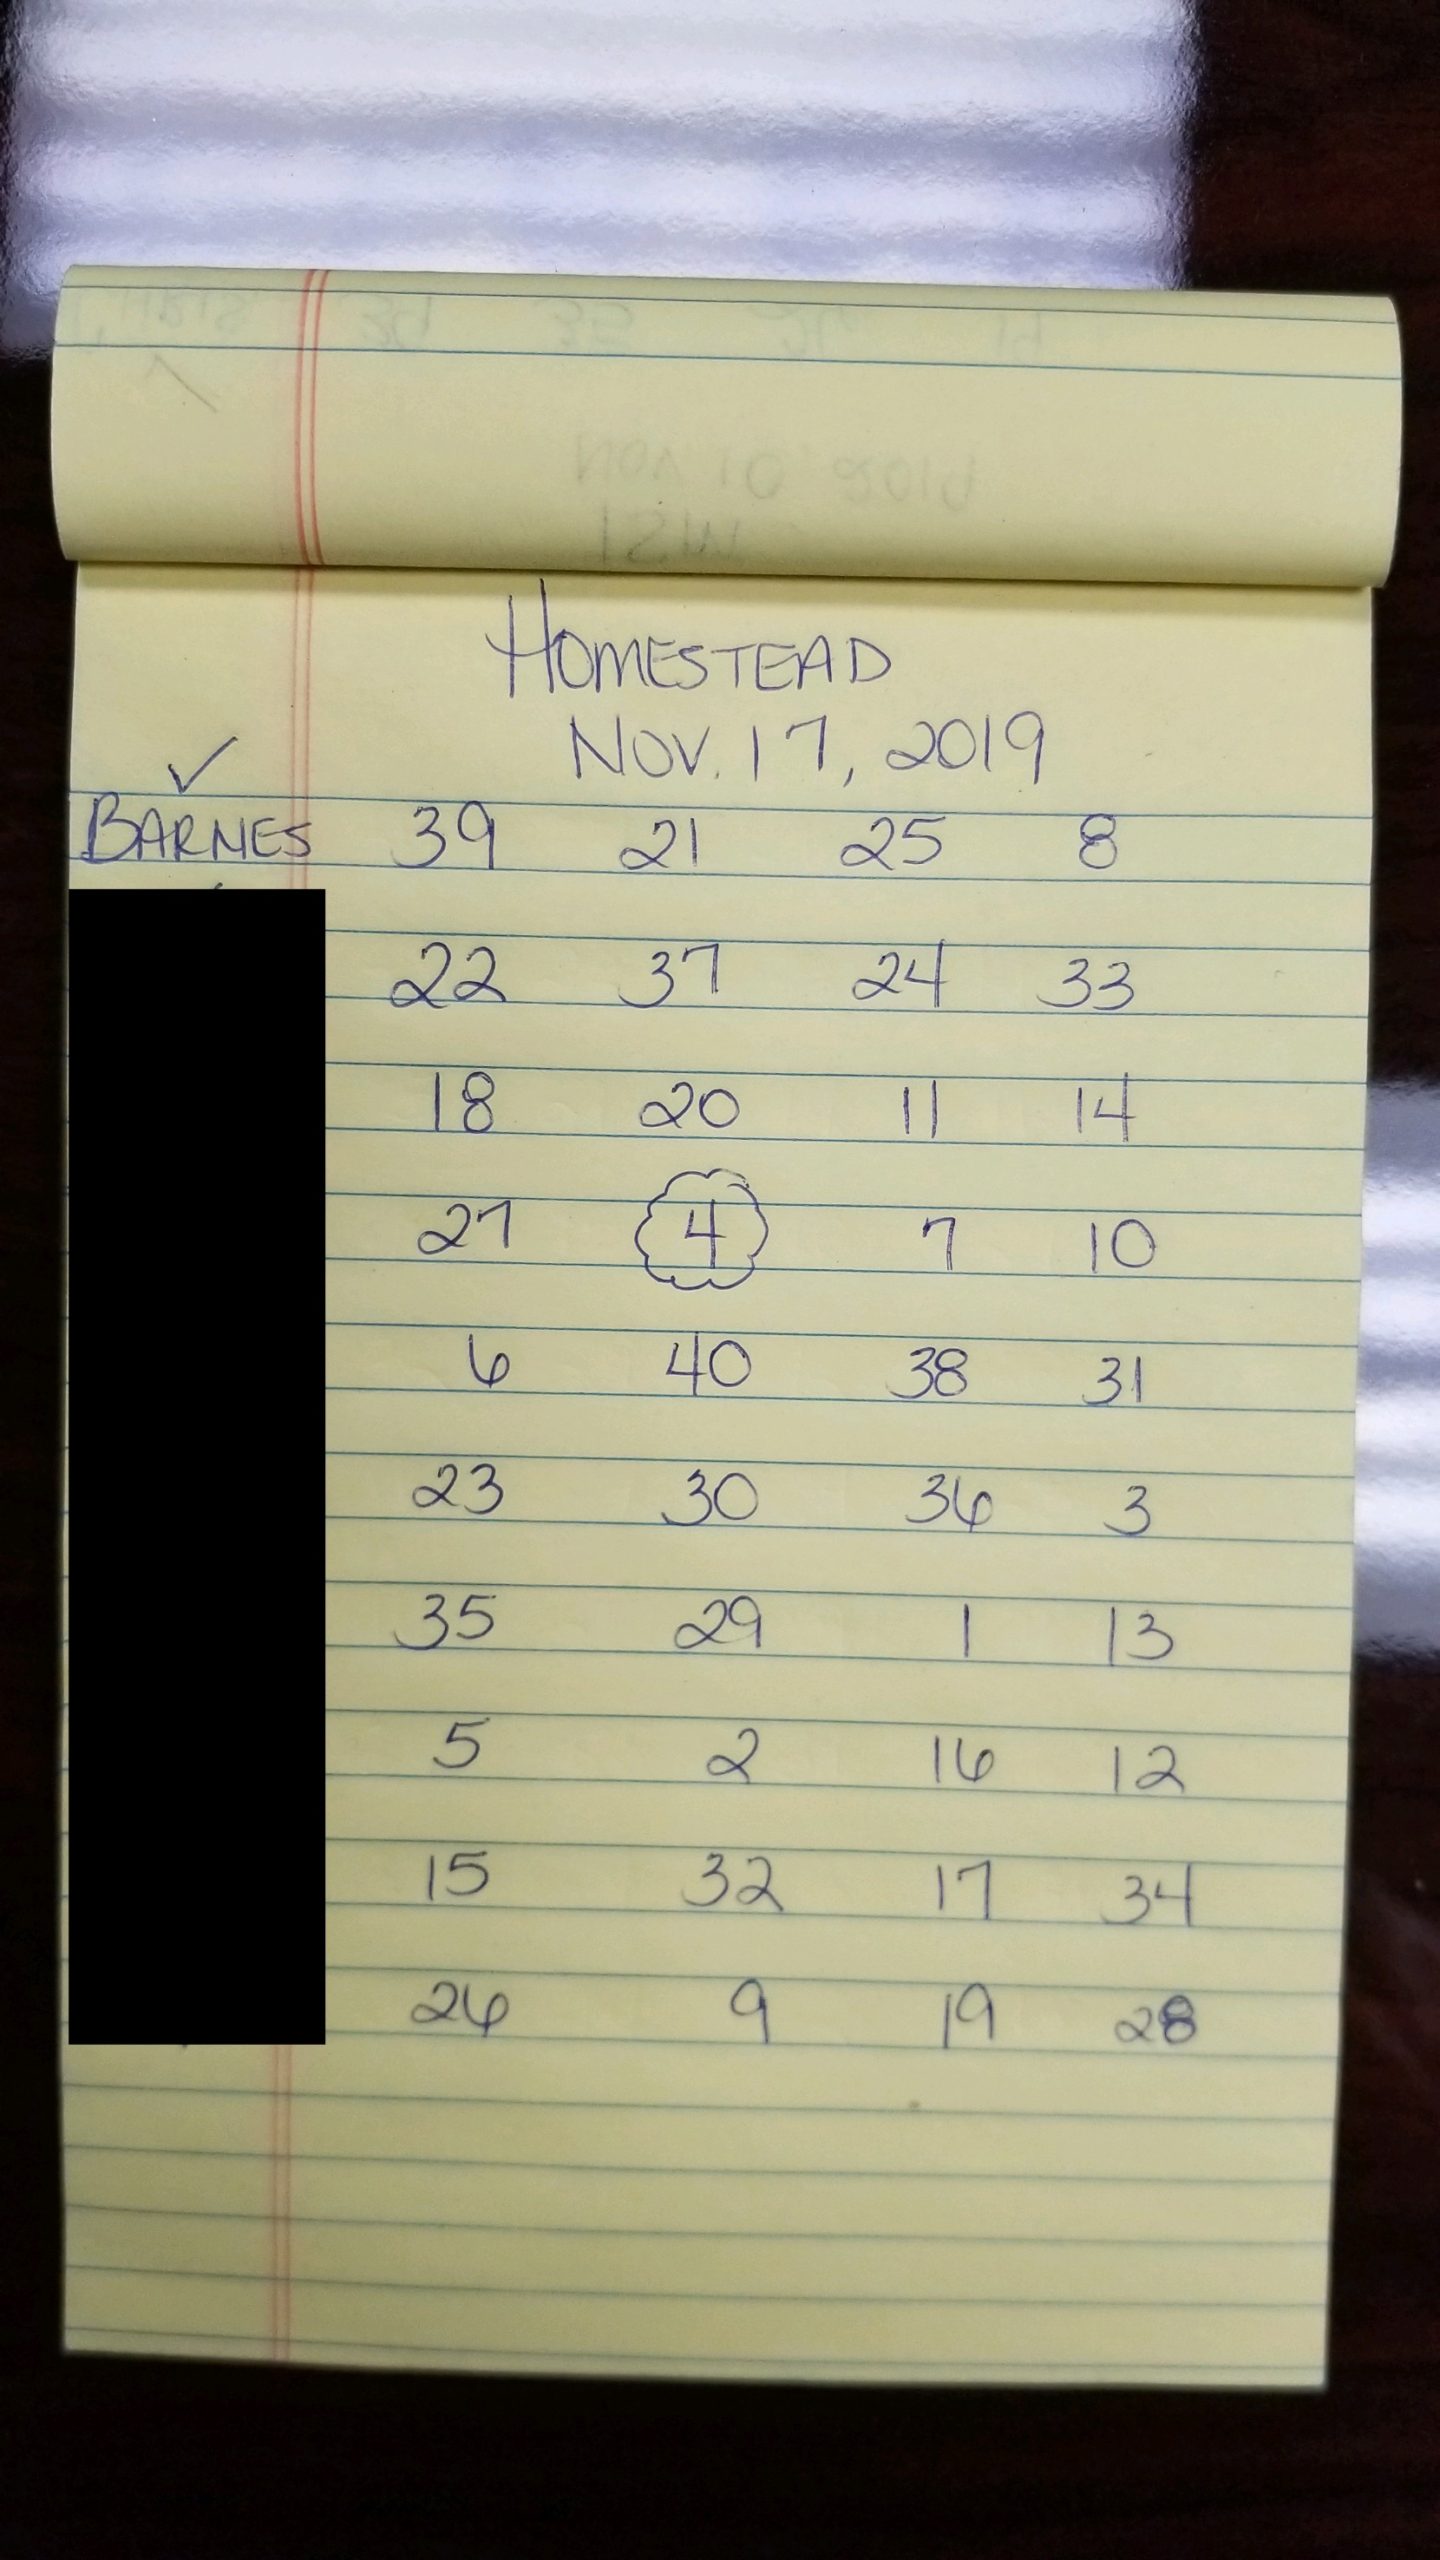 HOMESTEAD
NOV. 17, 2019
✓
BARNES 39 21 25 8
22 37 24 33
18 20 11 14
27 4 7 10
6 40 38 31
23 30 36 3
35 29 1 13
5 2 16 12
15 32 17 34
26 9 19 28